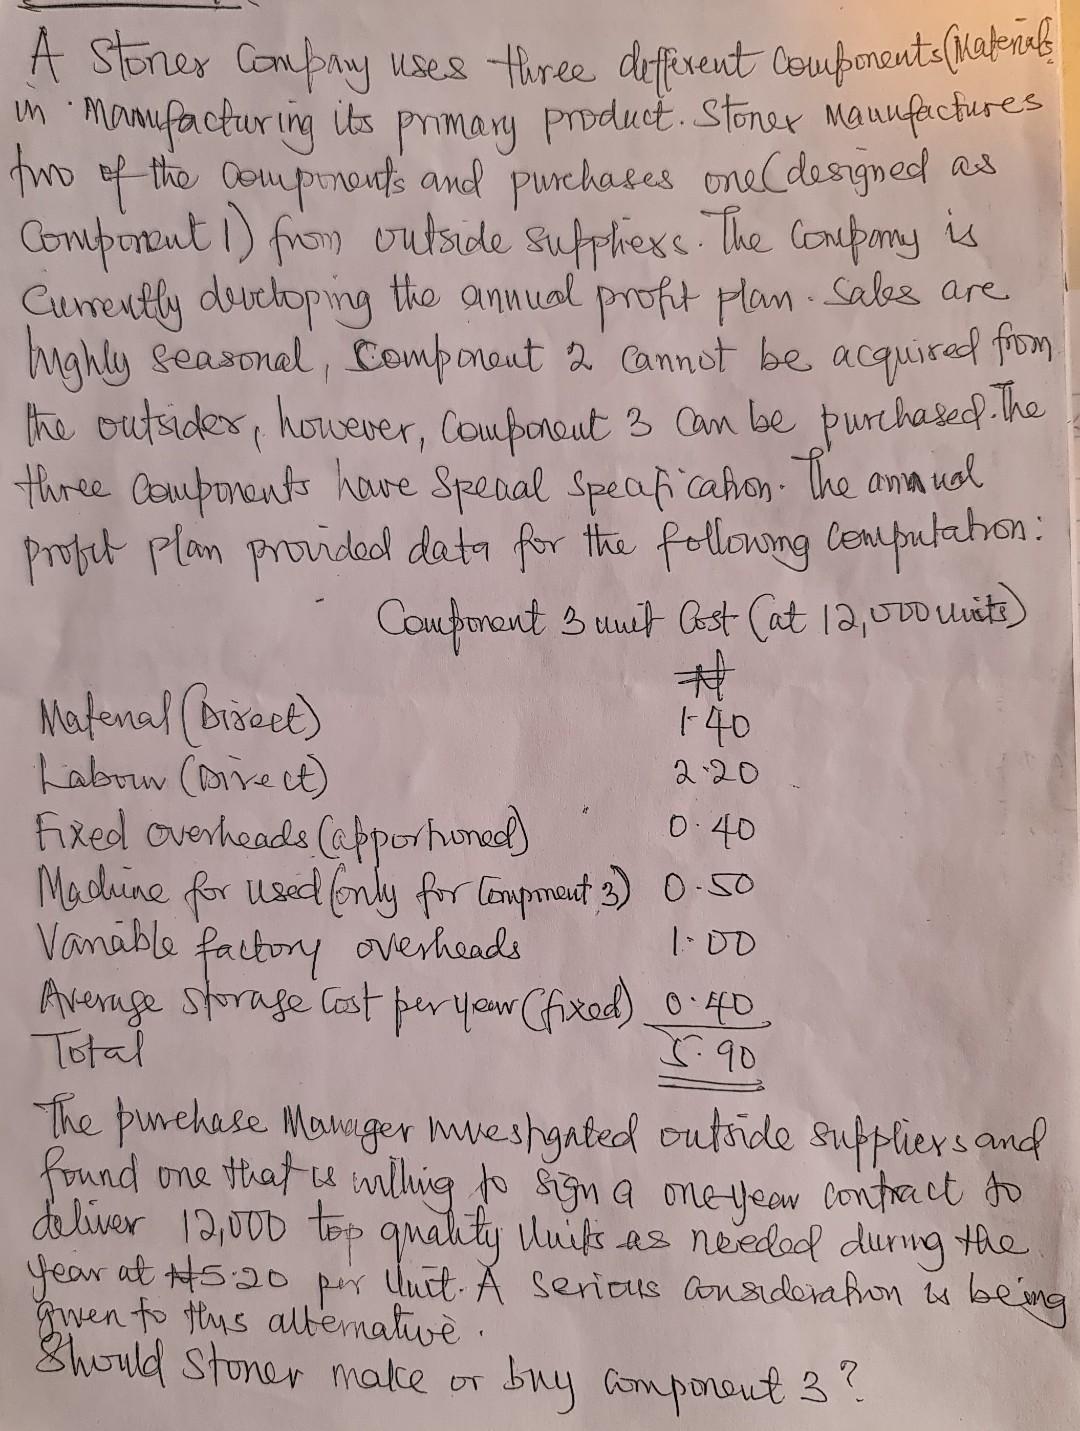 A Stoner Company uses three different Components (Materials
in Manufacturing its primary product. Stoner Manufactures
two of the Components and purchases one (designed as
Component 1) from outside suppliers. The Company is
Currently developing the annual profit plan. Sales are
highly seasonal, Component 2 cannot be acquired from
the outsider, however, Component 3 can be purchased. The
three Components have Special Specification. The annual
profit plan provided data for the following computation:
Component 3 unit Cost (at 12,000 units)
₦
Material (Direct) 1.40
Labour (Direct) 2.20
Fixed overheads (apportioned) 0.40
Machine for used (only for Component 3) 0.50
Variable factory overheads 1.00
Average storage Cost per year (fixed) 0.40
Total 5.90
The purchase Manager investigated outside suppliers and
found one that is willing to sign a one-year contract to
deliver 12,000 top quality Units as needed during the
year at ₦5.20 per Unit. A serious consideration is being
given to this alternative.
Should Stoner make or buy component 3?